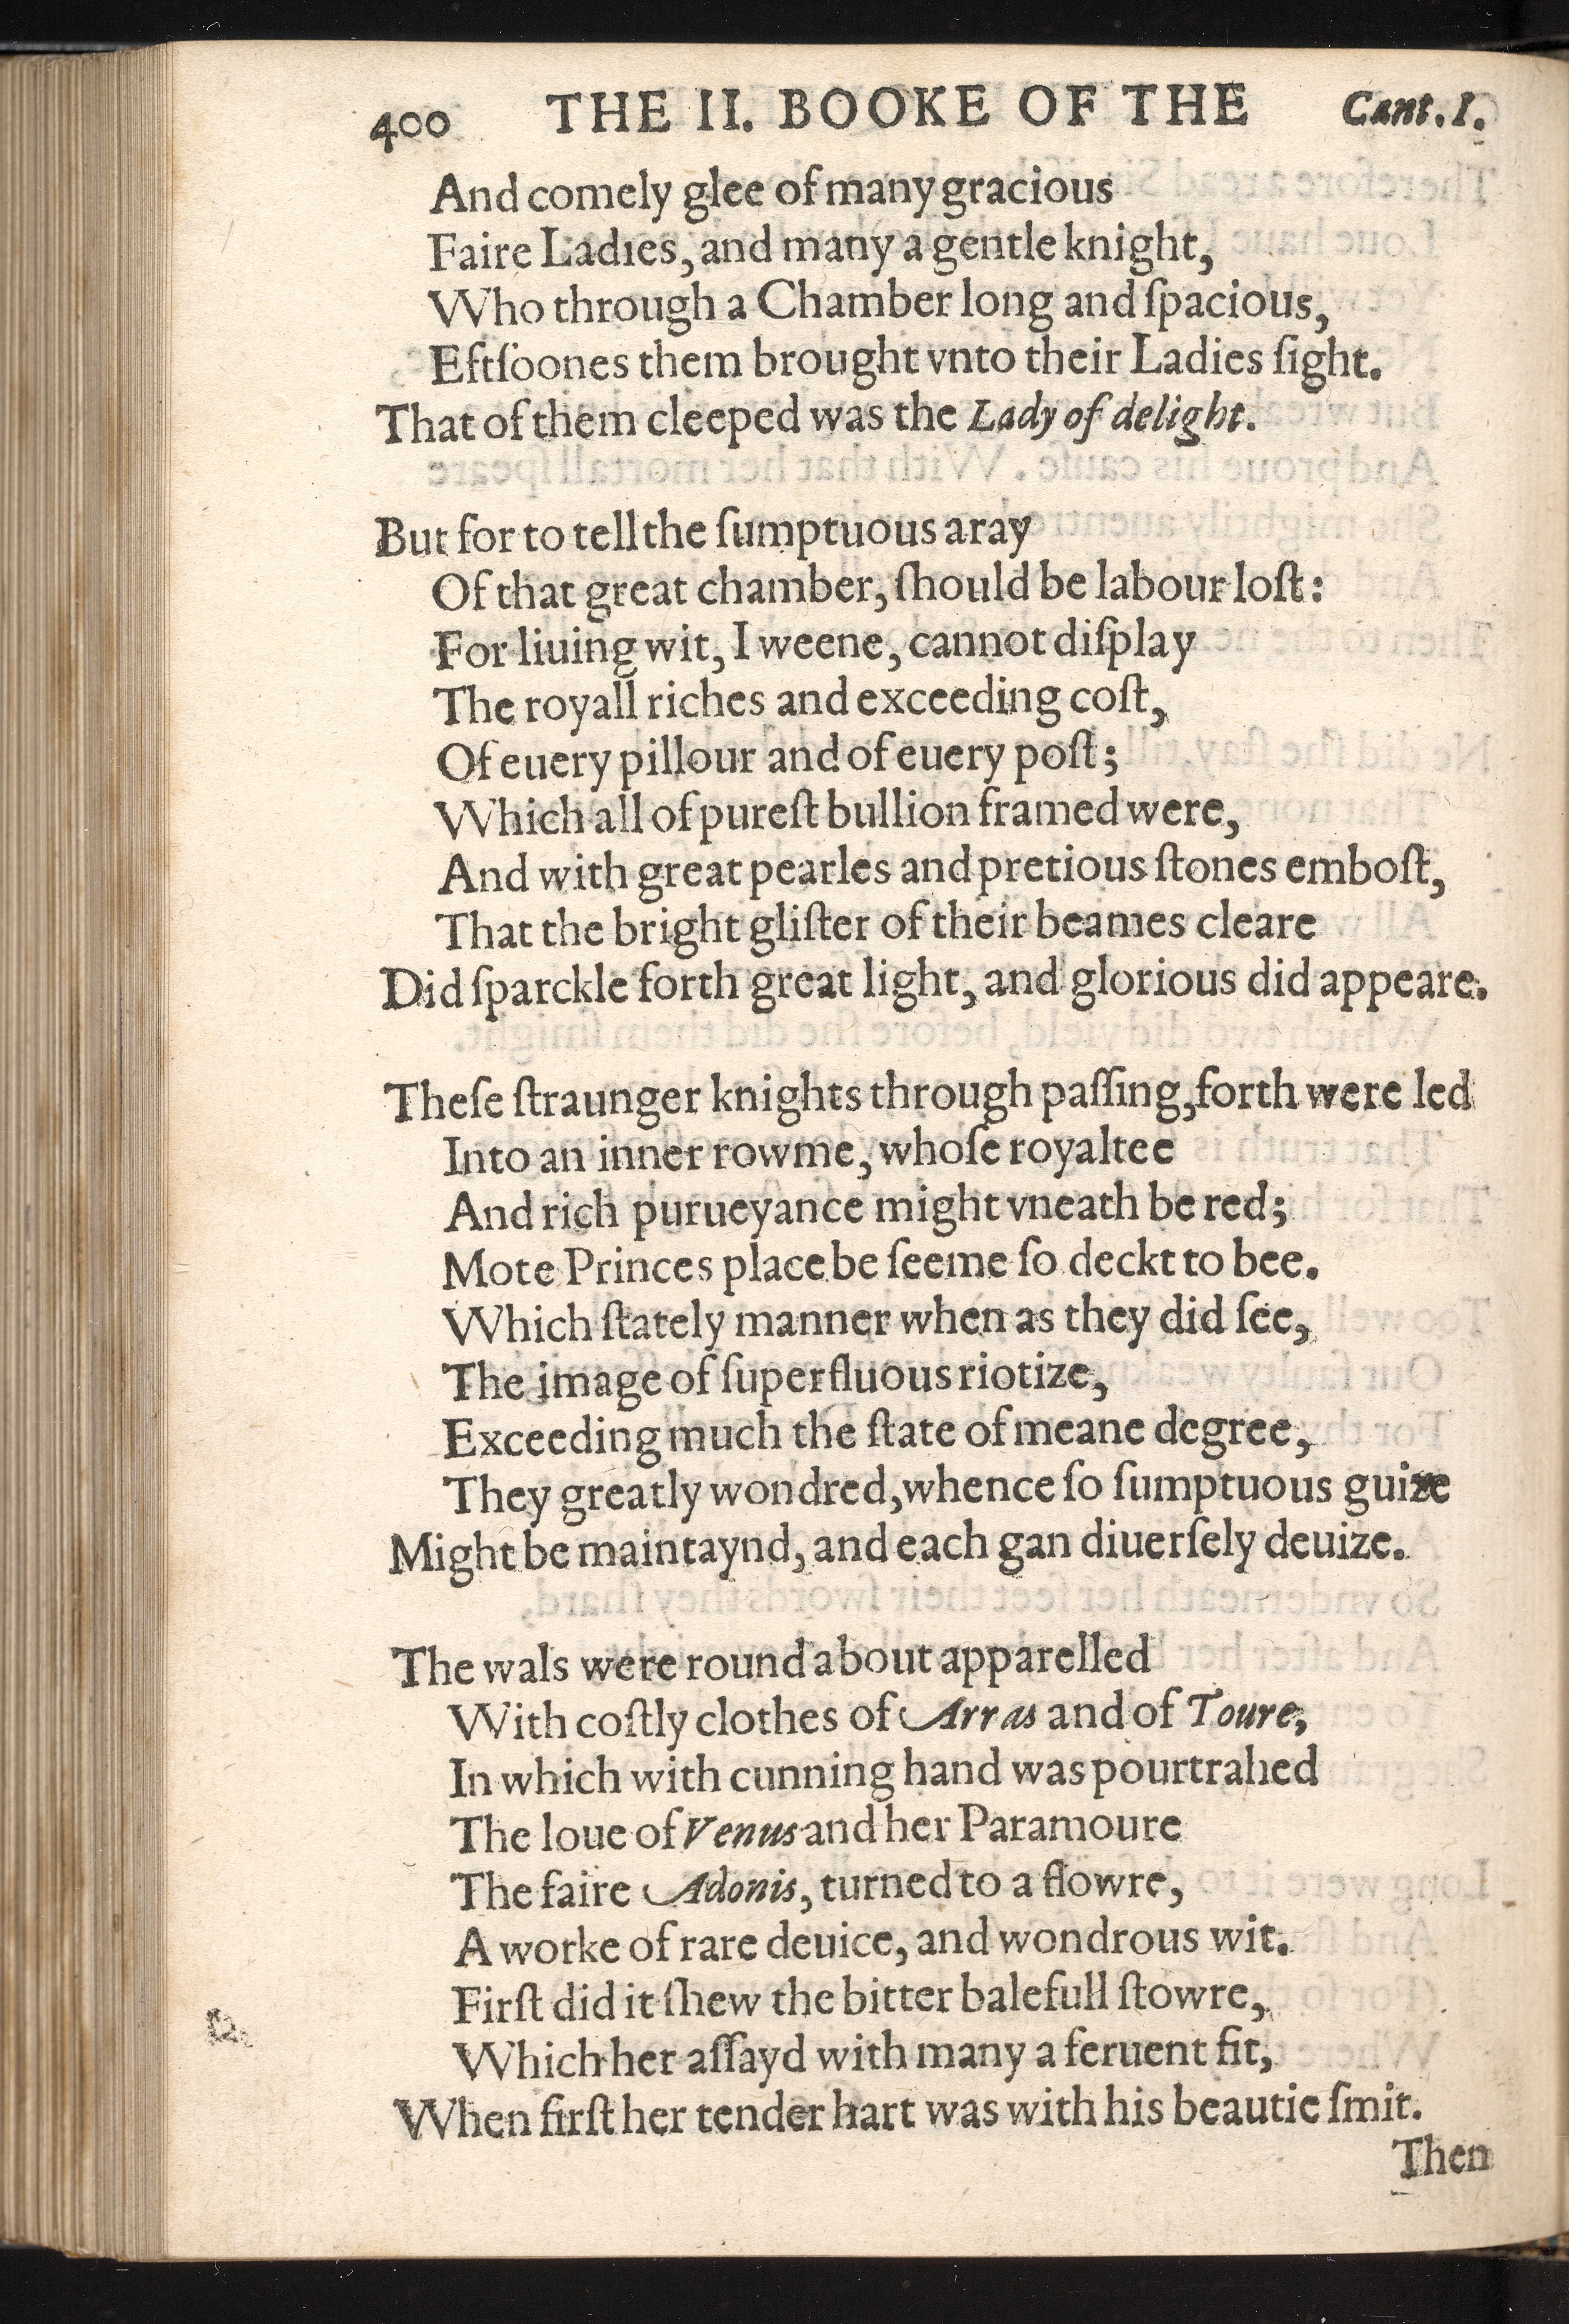 400 THE II. BOOKE OF THE Cant. I.
And comely glee of many gracious
Faire Ladies, and many a gentle knight,
Who through a Chamber long and ſpacious,
Eftſoones them brought vnto their Ladies ſight.
That of them cleeped was the Lady of delight.
But for to tell the ſumptuous aray
Of that great chamber, ſhould be labour loſt:
For liuing wit, I weene, cannot diſplay
The royall riches and exceeding coſt,
Of euery pillour and of euery poſt;
Which all of pureſt bullion framed were,
And with great pearles and pretious ſtones emboſt,
That the bright gliſter of their beames cleare
Did ſparckle forth great light, and glorious did appeare.
Theſe ſtraunger knights through paſſing, forth were led
Into an inner rowme, whoſe royaltee
And rich purueyance might vneath be red;
Mote Princes place be ſeeme ſo deckt to bee.
Which ſtately manner when as they did ſee,
The image of ſuperfluous riotize,
Exceeding much the ſtate of meane degree,
They greatly wondred, whence ſo ſumptuous guize
Might be maintaynd, and each gan diuerſely deuize.
The wals were round about apparelled
With coſtly clothes of Arras and of Toure,
In which with cunning hand was pourtrahed
The loue of Venus and her Paramoure
The faire Adonis, turned to a flowre,
A worke of rare deuice, and wondrous wit.
Firſt did it ſhew the bitter balefull ſtowre,
Which her aſſayd with many a feruent fit,
When firſt her tender hart was with his beautie ſmit.
Then